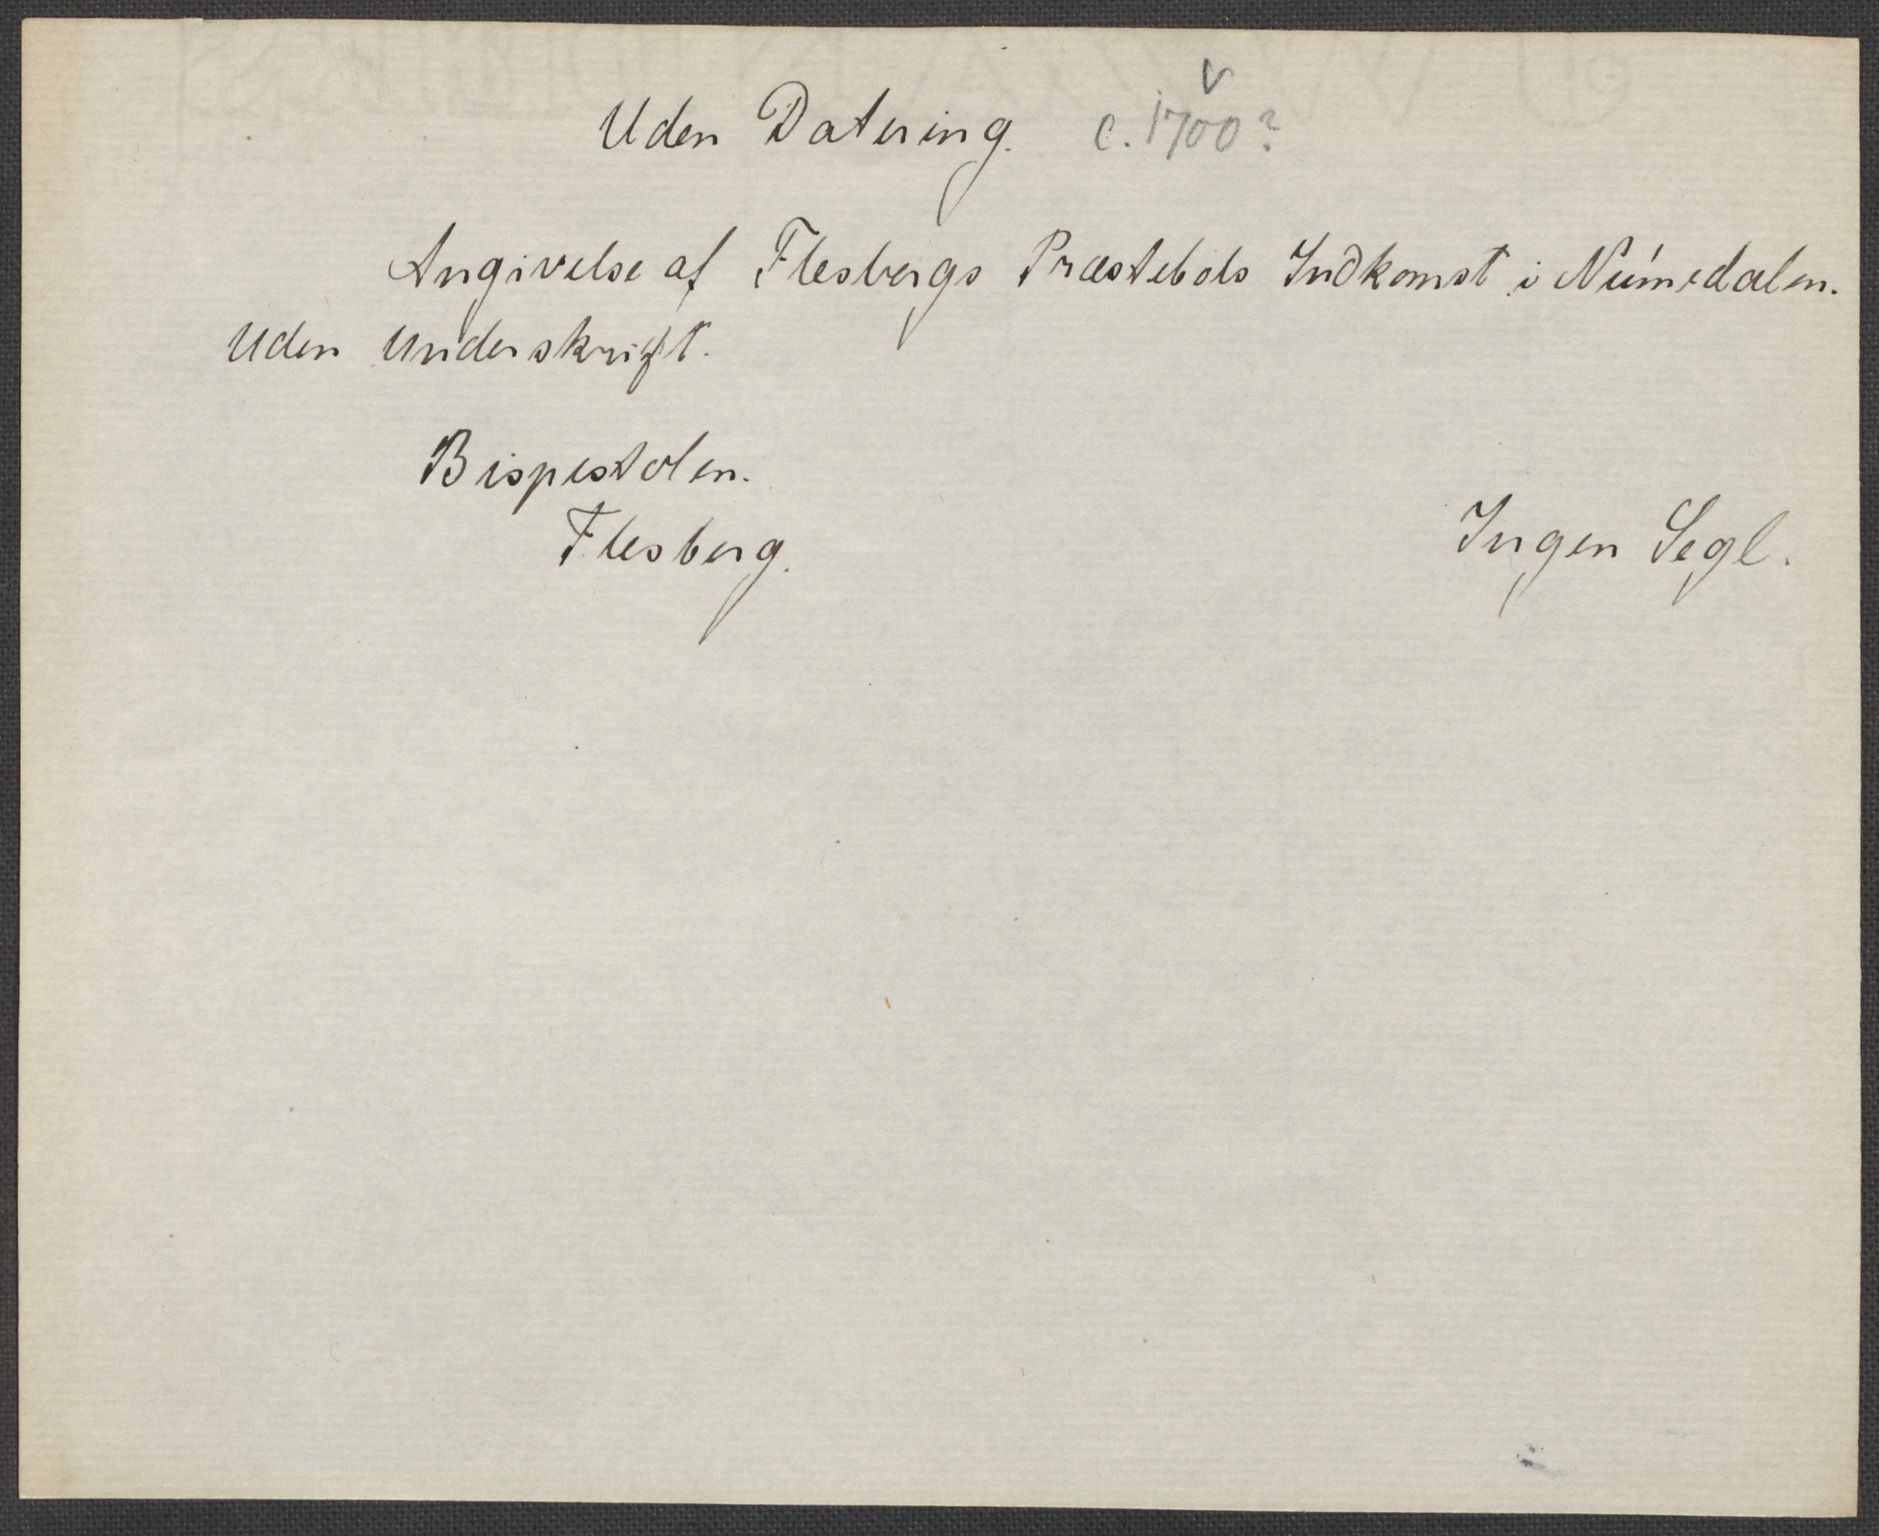 Uden Datering. c. 1700?
Angivelse af Flesbergs Præstebols Indkomst i Númedalen.
Uden Underskrift.
Bispestolen.
Flesberg.
Ingen Segl.